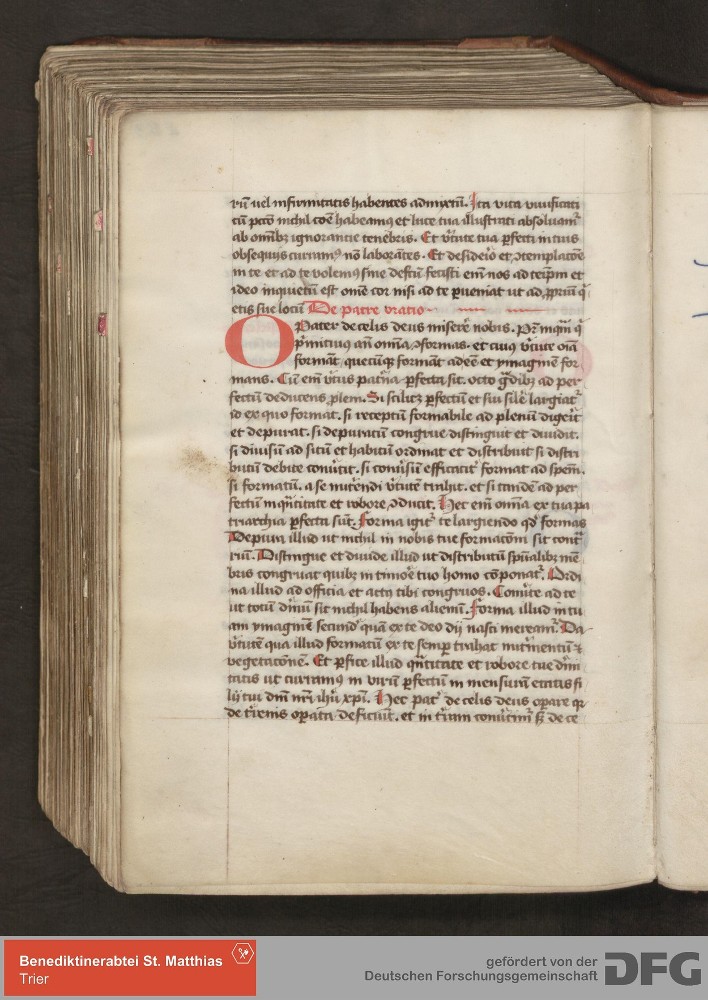 rū uel infirmitatis habentes admixtū. Ita vita viuificati
tū pctō nichil cōe habeamꝰ et luce tua illustrati absoluamᷣ
ab omībꝫ ignorantie tenebris. Et v̓tute tua ꝑfecti in tuis
obsequijs curramꝰ nō laborātes. Et desideīo et ꝯtemplacōe
in te et ad te volemꝰ sine defectu fecisti em̄ nos ad teip̄m et
ideo inquietū est om̄e cor nisi ad te ꝑueniat ut ad ꝓpriū q̓
etis sue locū De patre oratio
O Pater de celis deus miserē nobis. Pr̄ inqm̄ q̓
p̓mitiuus an̄ om̄ia ꝯformas. et cuiꝰ v̓tute oīa
formāt, quecūqꝫ formāt ad eē et ymaginē for
mans. Cū em̄ v̓tus pat̓na ꝑfecta sit. octo g̓dibꝫ ad per
fectū deducens ꝓlem. Si scilicꝫ ꝑfectū et sui sil̄e largiatᷣ
id ex quo format. si receptū formabile ad plenū digerit
et depurat. si depuratū congrue distinguit et diuidit.
si diuisū ad sitū et habitū ordinat et distribuit si distri
butū debite conu̓tit. si conu̓sū efficacit̓ format ad spēm.
si formatū. a se nut̓endi v̓tutē trahit. et si tandē ad per
fectū in qn̄titate et robore ꝯducit. Hec em̄ om̄ia ex tua pa
triarchia ꝑfecta sūt. Forma igitᷣ te largiendo qd̓ formas
Depura illud ut nichil in nobis tue formacōni sit cont̓
riū. Distingue et diuide illud ut distributū spūalibꝫ mē
bris congruat quibꝫ in timoē tuo homo cōponatᷣ. Ordi
na illud ad officia et actꝰ tibi congruos. Conu̓te ad te
ut totū diuinū sit nichil habens alienū. Forma illud in tu
am ymaginē secundū quā ex te deo dij nasci mereamᷣ. Da
v̓tutem qua illud formatū ex te semꝑ trahat nutrimentū ⁊
vegetacōnē. Et ꝑfice illud qn̄titate et robore tue diuini
tatis ut curramꝰ in virū ꝑfectū in mensurā etatis fi
lij tui dn̄i nr̄i ihū xp̄i. Hec pat̓ de celis deus oꝑare qr
de t̓renis oꝑarii deficiūt. et in t̓ram conu̓timᷣ sꝫ de ce
Benediktinerabtei St. Matthias
Trier
gefördert von der
Deutschen Forschungsgemeinschaft
DFG